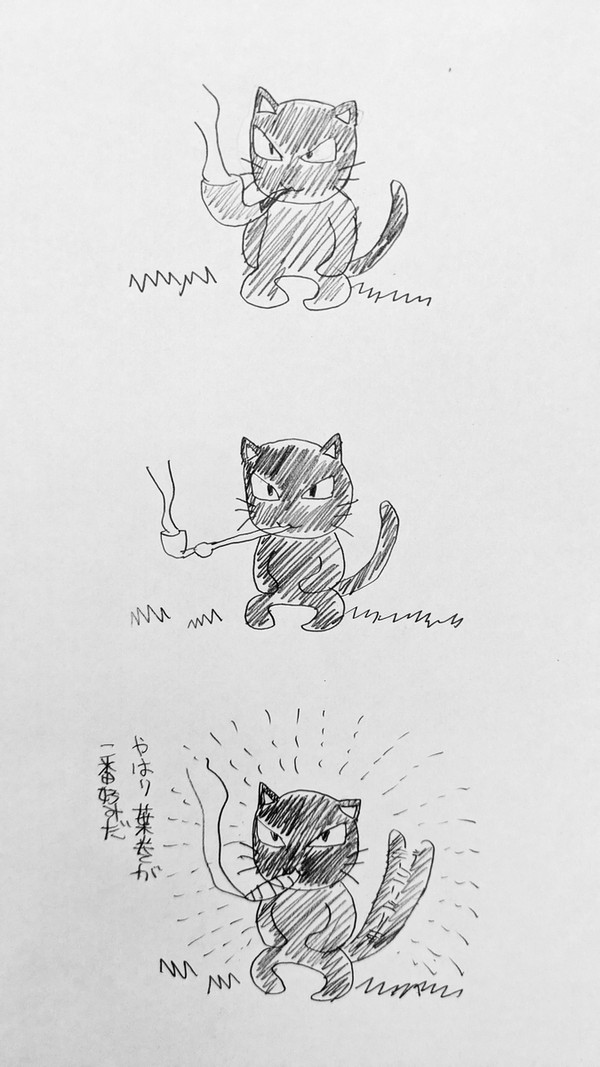 やはり葉巻が
一番好みだ